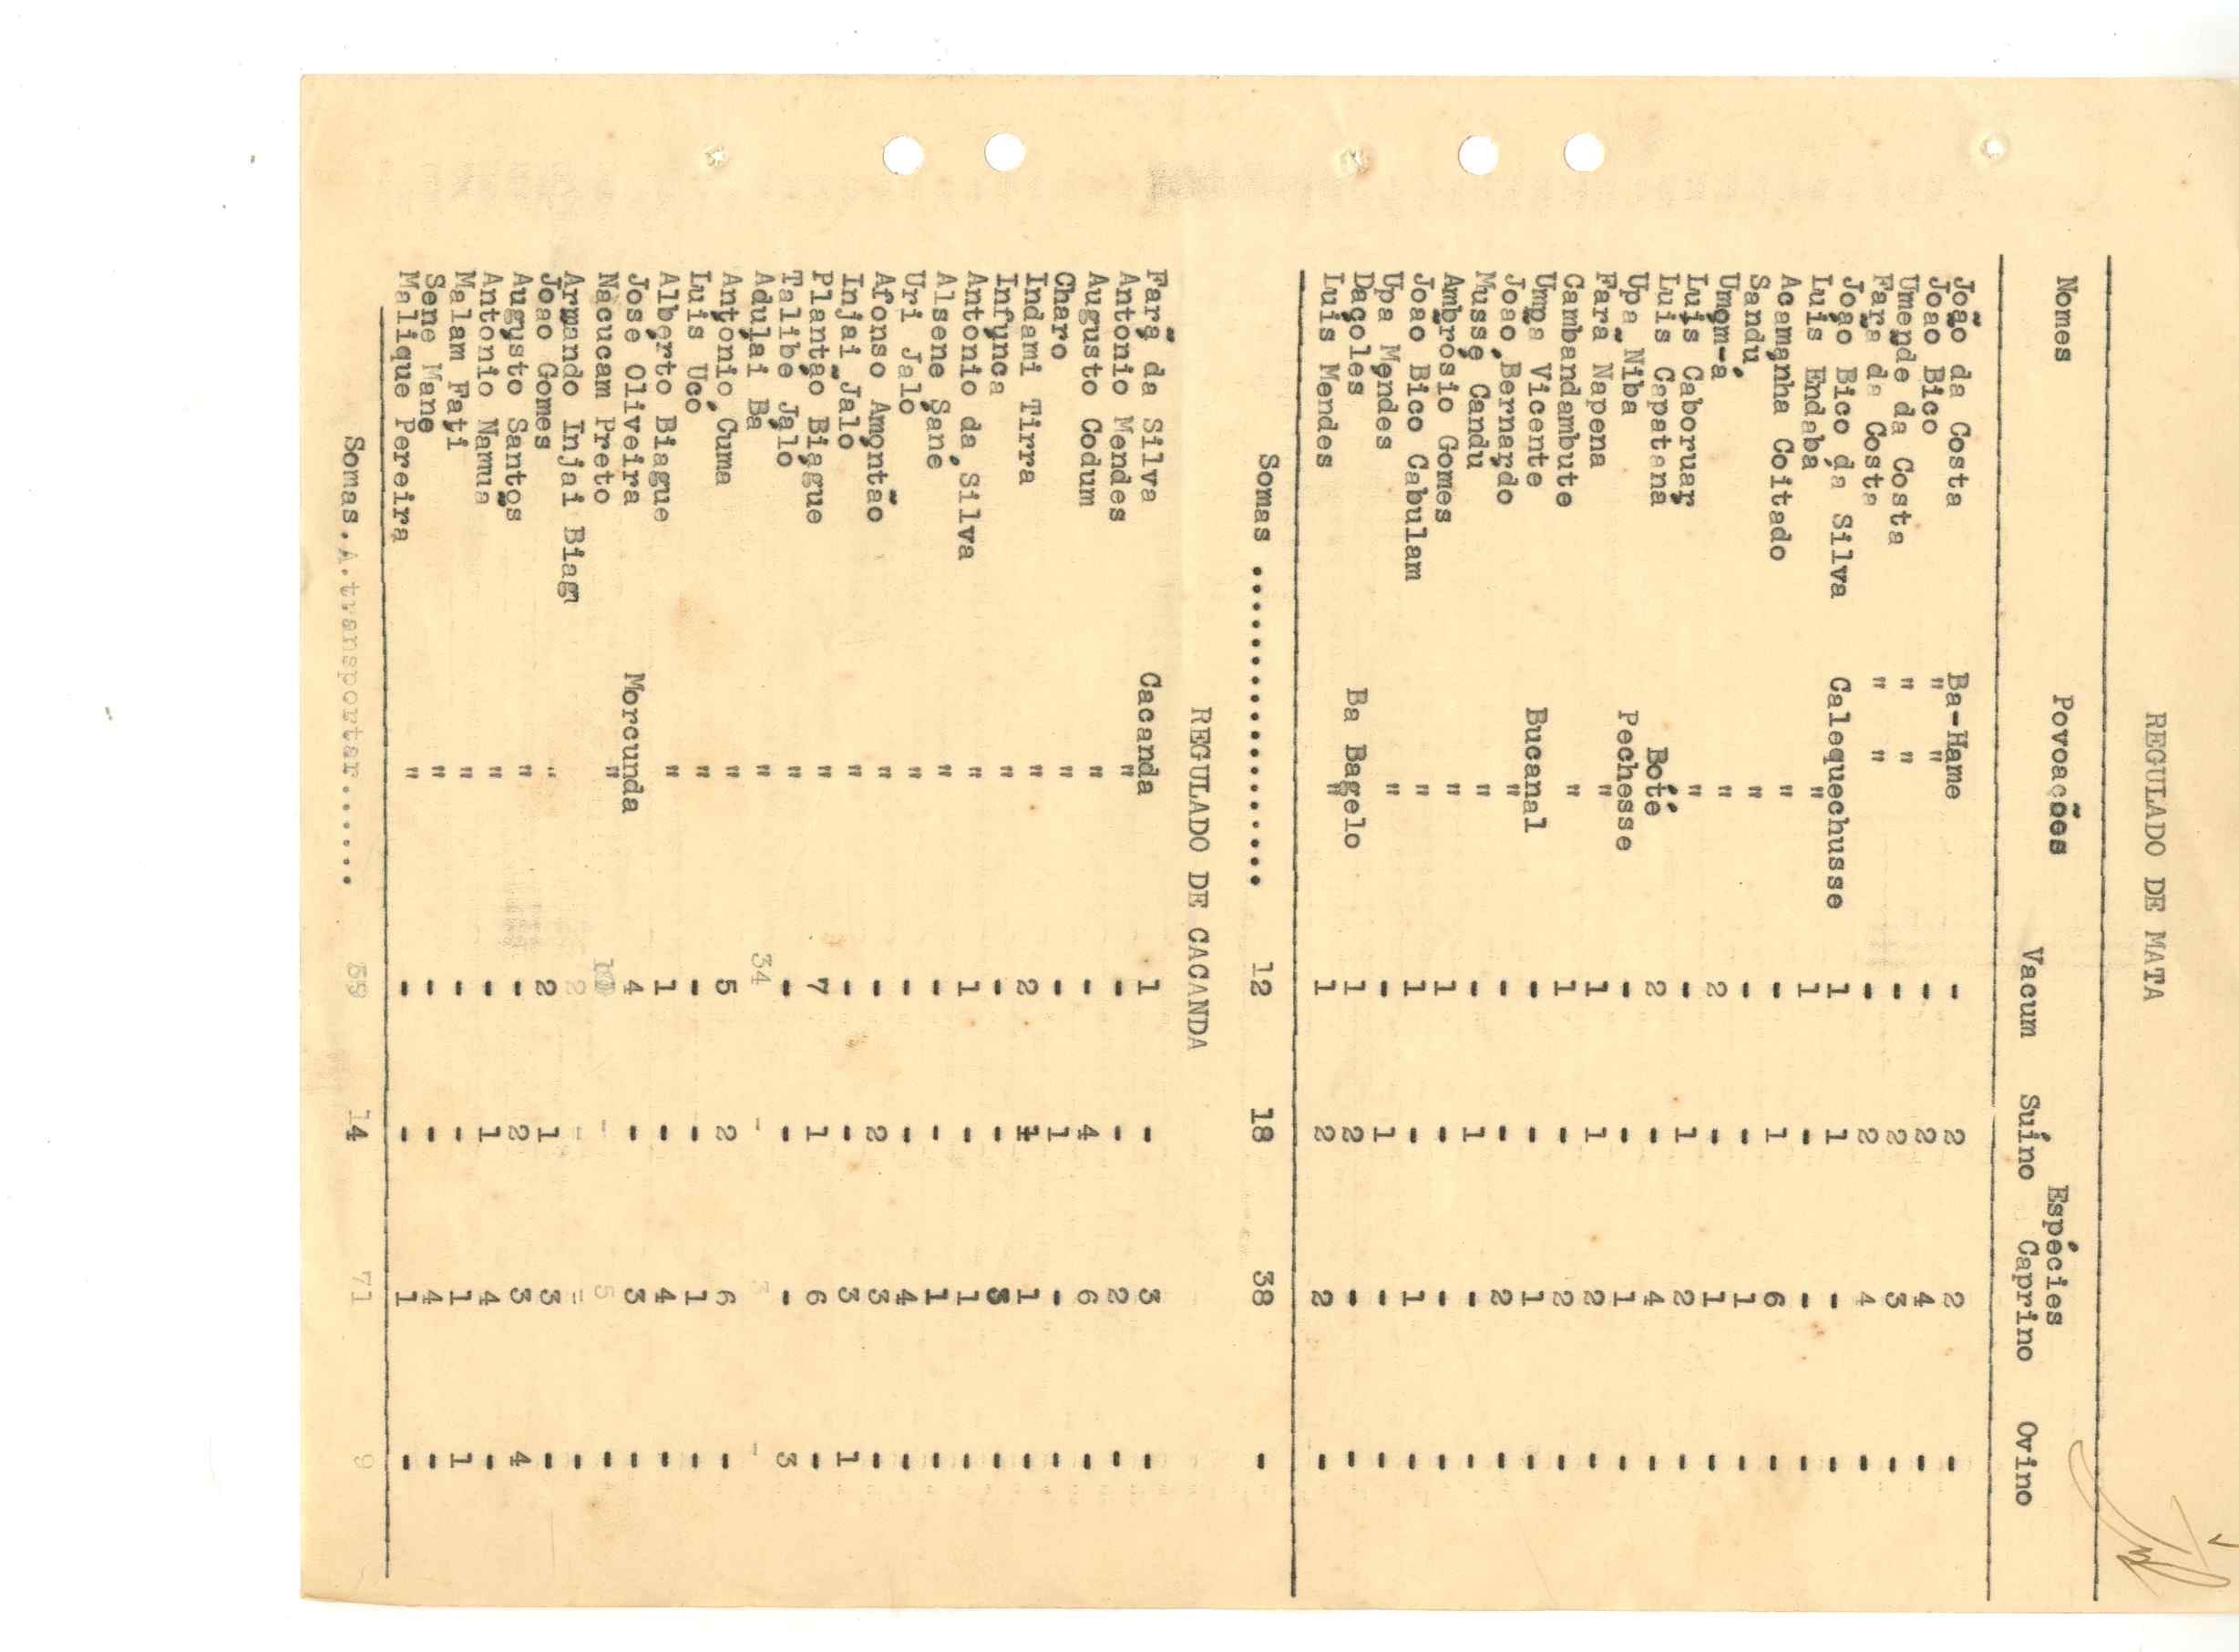 REGULADO DE MATA
Nomes Povoações Espécies
Vacum Suíno Caprino Ovino
João da Costa Ba-Hame - 2 2 -
João Bico " " - 2 4 -
Umende da Costa " " - 2 3 -
Fará da Costa " " - 2 4 -
João Bico da Silva Calequechusse 1 1 - -
Luís Endaba " 1 - - -
Acamanha Coitado " - 1 6 -
Sandu " - - 1 -
Umom-á " 2 - 1 -
Luís Caboruar " - 1 2 -
Luis Capatana Boté 2 - 4 -
Upa Niba Pechesse - - 1 -
Fara Napena " 1 1 2 -
Cambandambute " 1 - 2 -
Umpa Vicente Bucanal - - 1 -
João Bernardo " - - 2 -
Musse Candu " - 1 - -
Ambrósio Gomes " 1 - - -
João Bico Cabulam " 1 - 1 -
Upa Mendes " - 1 - -
Daçoles Ba Bagelo 1 2 - -
Luis Mendes " 1 2 2 -
Somas ...................... 12 18 38 -
REGULADO DE CACANDA
Fará da Silva Cacanda 1 - 3 -
Antonio Mendes " - - 2 -
Augusto Codum " - 4 6 -
Charo " - 1 - -
Indami Tirra " 2 1 1 -
Infunca " - - 3 -
Antonio da Silva " 1 - 1 -
Alsene Sane " - - 1 -
Uri Jaló " - - 4 -
Afonso Amontão " - 2 3 -
Injai Jalo " - - 3 1
Plantão Biague " 7 1 6 -
Talibe Jalo " - - - 3
Adulai Ba " 34 - 3 -
António Cuma " 5 2 6 -
Luis Ucó " - - 1 -
Alberto Biague " 1 - 4 -
Jose Oliveira Morcunda 4 - 3 -
Nacucam Preto " - 5 -
Armando Injai Biag 2 - - -
Joao Gomes " 2 1 3 -
Augusto Santos " - 2 3 4
Antonio Namua " - 1 4 -
Malam Fati " - - 1 1
Sene Mane " - - 4 -
Malique Pereira " - - 1 -
Somas.A.transportar...... 59 14 71 9